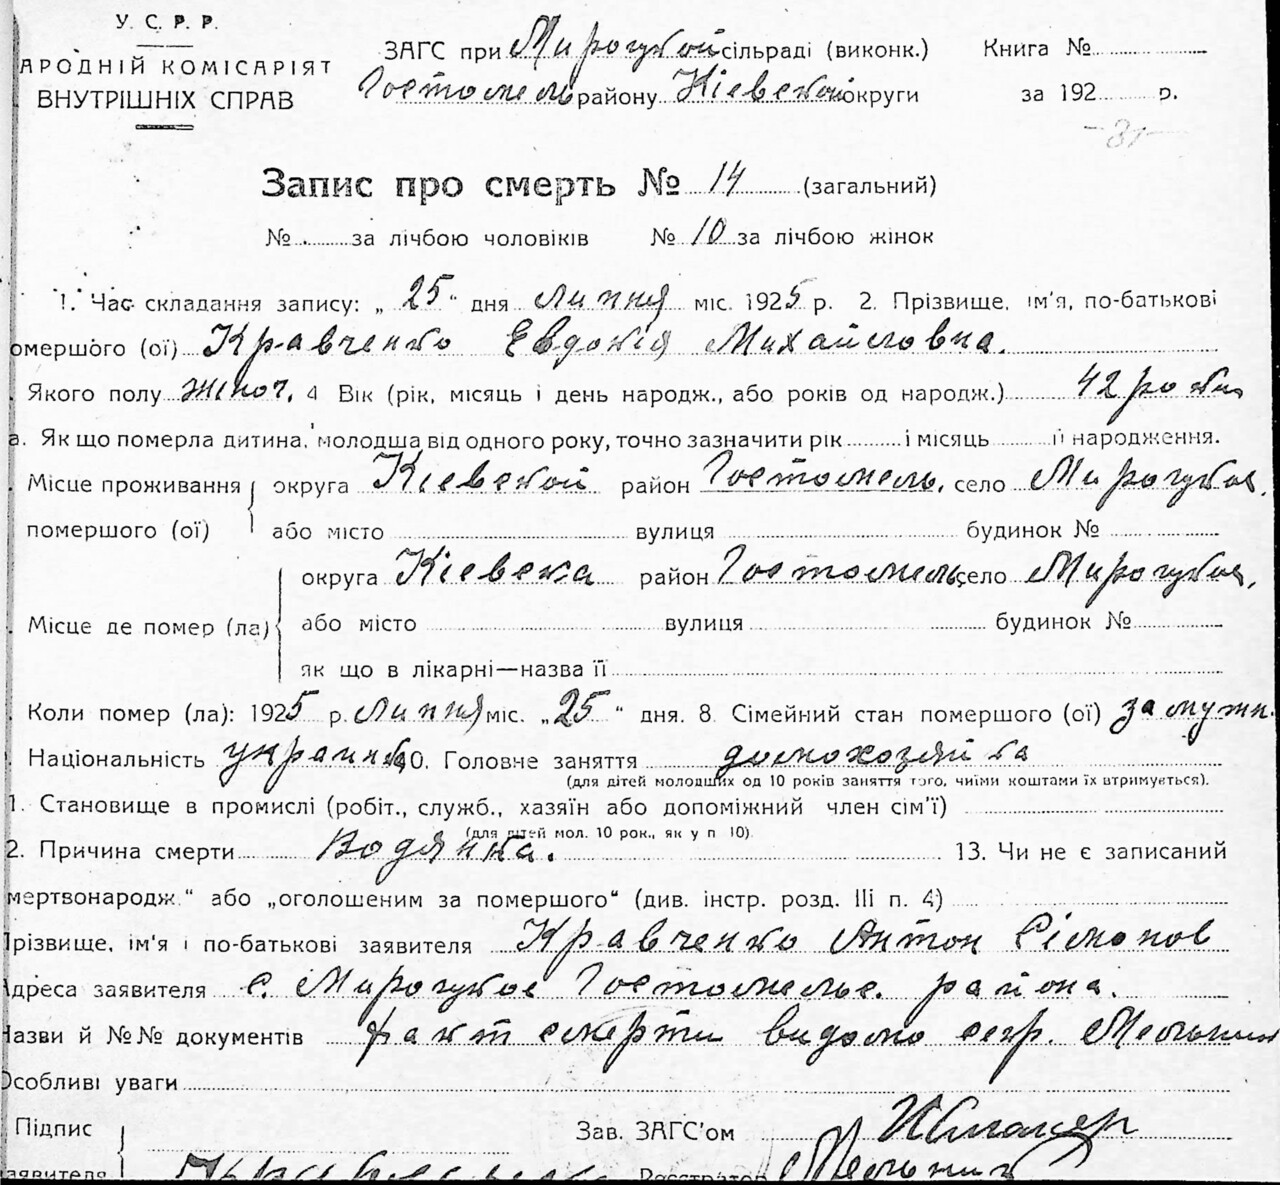 У. С. Р. Р.
АРОДНІЙ КОМІСАРІЯТ
ВНУТРІШНІХ СПРАВ
ЗАГС при Мироцкой сільраді (виконк.)
Гостомель району Кіевской округи
Книга №
за 192 р.
Запис про смерть № 14 (загальний)
№ за лічбою чоловіків № 10 за лічбою жінок
1. Час складання запису: „25“ дня липня міс. 1925 р. 2. Прізвище, ім'я, по-батькові
омершого (ої) Кравченко Евдокія Михайловна.
Якого полу жіноч. 4 Вік (рік, місяць і день народж., або років од народж.) 42 роки
а. Як що померла дитина, молодша від одного року, точно зазначити рік і місяць її народження.
Місце проживання помершого (ої) округа Кіевской район Гостомель. село Мироцкое,
або місто вулиця будинок №
Місце де помер (ла) округа Кіевска район Гостомель село Мироцкое,
або місто вулиця будинок №
як що в лікарні—назва її
Коли помер (ла): 1925 р. липня міс. „25“ дня. 8. Сімейний стан помершого (ої) замужн.
Національність украинка 10. Головне заняття домохозяйка
(для дітей молодших од 10 років заняття того, чиїми коштами їх втримується).
1. Становище в промислі (робіт., служб., хазяїн або допоміжний член сім'ї)
(для дітей мол. 10 рок., як у п 10)
2. Причина смерти Водянка. 13. Чи не є записаний
мертвонародж.“ або „оголошеним за помершого“ (див. інстр. розд. III п. 4)
Прізвище, ім'я і по-батькові заявителя Кравченко Антон Сімонов
Адреса заявителя с. Мироцкое Гостомельс. района.
Назви й №№ документів факт смерти видомо секр. Мельник
Особливі уваги
Підпис заявителя
Зав. ЗАГС'ом
Реєстратор Мельник